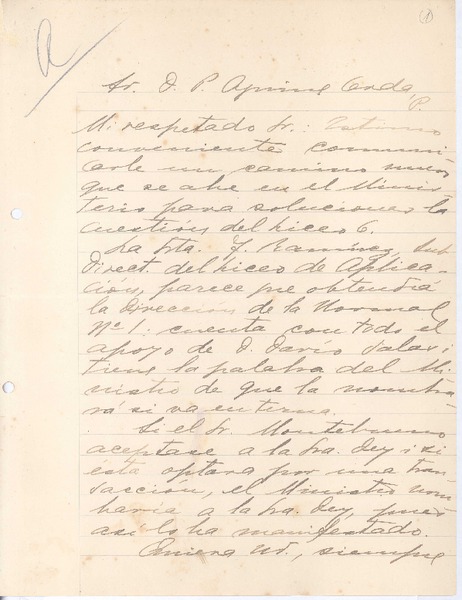 (1)
a
Sr. D. P. Aguirre Cerda
P.
Mi respetado Sr.: Estimo
conveniente comuni
carle un camino nuevo
que se abre en el Minis-
terio para solucionar la
cuestión del Liceo 6.
La Srta. J. Ramírez, Sub
Direct. del Liceo de Aplica-
ción, parece que obtendrá
la Dirección de la Normal
Nº 1: cuenta con todo el
apoyo de D. Darío Salas i
tiene la palabra del Mi-
nistro de que la nombra
rá si va en terna.
Si el Sr. Montebruno
aceptase a la Sra. Dey i si
ésta optara por una tran
sacción, el Ministro nom
braria a la Sra. Dey, pues
así lo ha manifestado.
Quiera Ud., siempre